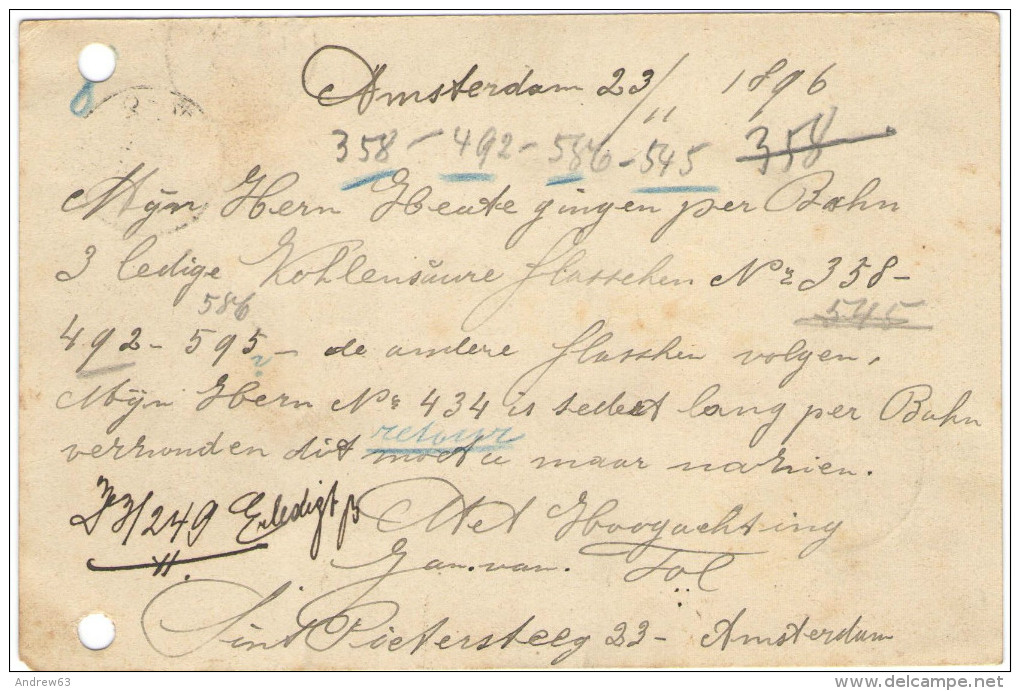 Amsterdam 23/11 1896
358 - 492 - 586 - 545 358
Mÿn Hern Heute gingen per Bahn
3 ledige Kohlensäure flasschen Nr 358 -
586 545
492 - 595 - de andere flasshen volgen.
Mÿn Hern Nr 434 is sedert lang per Bahn
retour
verzonden dit moet u maar nazien.
23/249 Erledigt
11.
Met Hoogachting
Jan. van. Tol
Sint Pietersteeg 23 - Amsterdam
Andrew63
delcampe.net